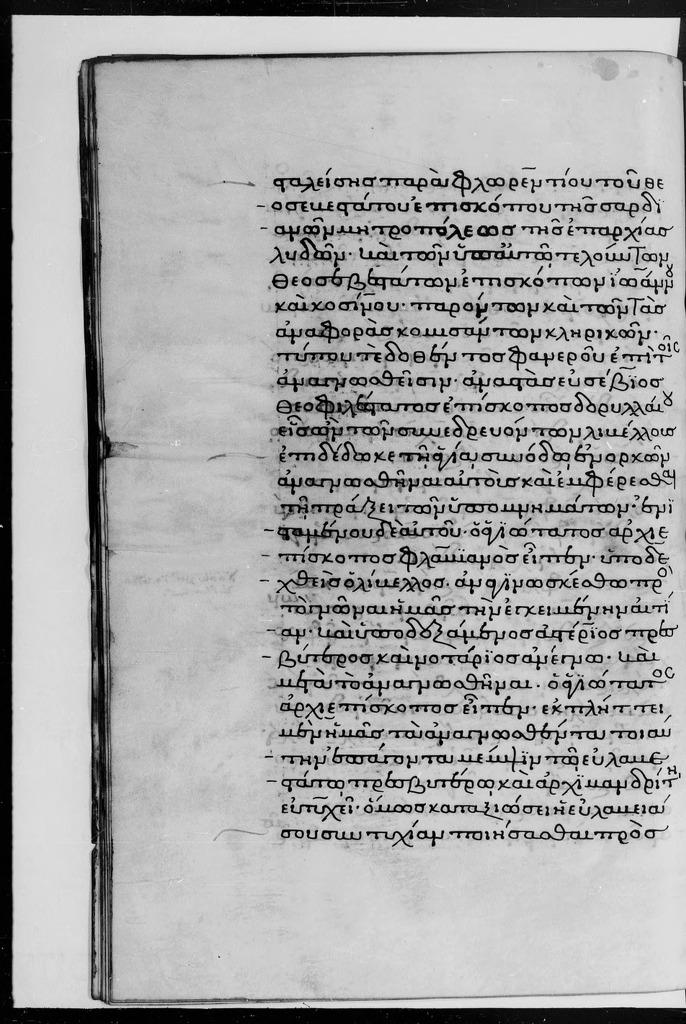 σταλείσης παρὰ φλωρεντίου τοῦ θε
οσεβεστάτου ἐπισκόπου τῆς σαρδι
ανῶν μητροπόλεως τῆς ἐπαρχίας
λυδῶν· καὶ τῶν ὑπ' αὐτῶ τελούντων
θεοσεβεστάτων ἐπισκόπων ἰωάννου
καὶ κοσίνου· παρόντων καὶ τῶν τὰς
ἀναφορὰς κομισάντων κληρικῶν·
τύπου τὲ δοθέντος φανεροῦ ἐπὶ τοῖς
ἀναγνωσθεῖσιν· ἀναστὰς εὐσέβϊος
θεοφιλέστατος ἐπίσκοπος δορυλλαίου
εἷς ὢν τῶν συνεδρευόντων λιβέλλους
ἐπιδέδωκε τῇ ἁγίᾳ συνόδω ἐνορκῶν
ἀναγνωσθῆναι αὐτοὺς καὶ ἐμφέρεσθαι
τῇ πράξει τῶν ὑπομνημάτων· ἐνϊ
σταμένου δὲ αὐτοῦ· ὁ ἁγϊώτατος ἀρχιε
πίσκοπος φλαυϊανὸς εἶπεν· ὑποδε
χθεὶς ὁ λίβελλος· ἀναγϊνωσκέσθω πρὸς
τὸ γνῶναι ἡμᾶς τὴν ἐγκειμένην αἰτί
αν· καὶ ὑποδεξάμενος ἀστέρϊος πρεσ
βύτερος καὶ νοτάρϊος ἀνέγνω· καὶ
μετὰ τὸ ἀναγνωσθῆναι· ὁ ἁγϊώτατος
ἀρχιεπίσκοπος εἶπεν· ἐκπλήττει
μὲν ἡμᾶς τὰ ἀναγνωσθέντα τοιαύ
την ἐπάγοντα μέμψϊν τῶ εὐλαβε
στάτω πρεσβυτέρω καὶ ἀρχϊμανδρίτη
εὐτυχεῖ· ὅμως καταξιώσει ἡ εὐλάβειά
σου συντυχίαν ποιήσασθαι πρὸς